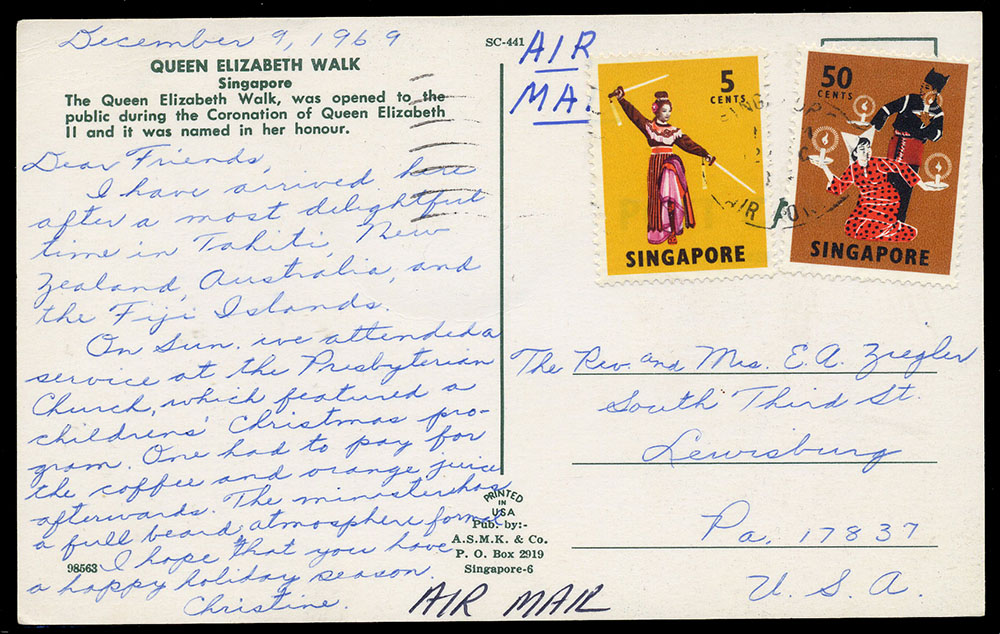 December 9, 1969
QUEEN ELIZABETH WALK
Singapore
The Queen Elizabeth Walk, was opened to the
public during the Coronation of Queen Elizabeth
II and it was named in her honour.
Dear Friends,
I have arrived here
after a most delightful
time in Tahiti, New
Zealand, Australia, and
the Fiji Islands.
On Sun. we attended a
service at the Presbyterian
Church, which featured a
childrens' Christmas pro-
gram. One had to pay for
the coffee and orange juice
afterwards. The minister has
a full beard, atmosphere formal.
I hope that you have
a happy holiday season.
Christine.
98563
SC-441
AIR
MA
5
CENTS
SINGAPORE
50
CENTS
SINGAPORE
The Rev. and Mrs. E. A. Ziegler
South Third St.
Lewisburg
Pa. 17837
U. S. A.
PRINTED
IN
USA
Pub. by:-
A.S.M.K. & Co.
P. O. Box 2919
Singapore-6
AIR MAIL